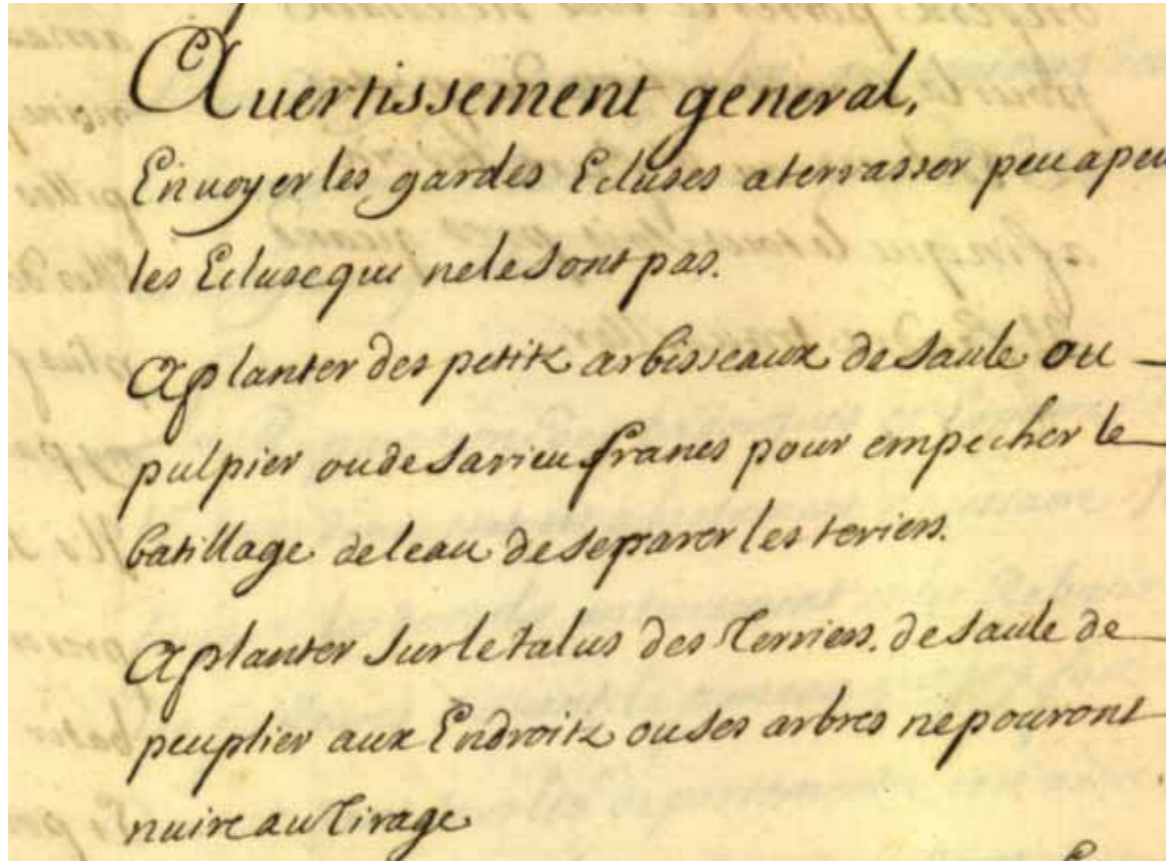 Auertissement general,
Enuoyer les gardes Ecluses aterrasser peu apeu
les Ecluse qui nele sont pas.
A planter des petitz arbisseaux de saule ou
pulpier ou de francs pour empecher le
batillage deleau de separer les teriers.
A planter sur le talus des Terriers. de saule de
peuplier aux Endroitz ou ses arbres ne pouront
nuire au Tirage